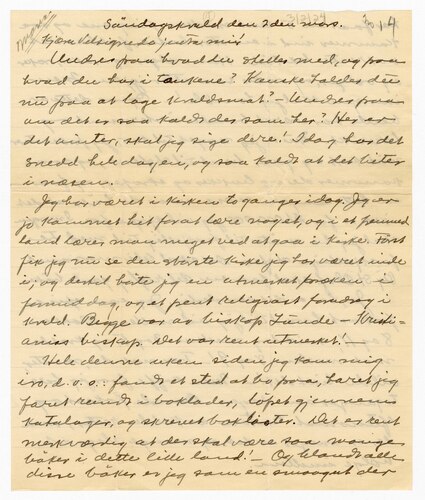 14
Søndagskveld den 7den mars.
Kjære Velsignede jenta mi!
Undres paa hvad du steller med, og paa
hvad du har i tankene? Kanske holder du
nu paa at lage kveldsmat? — Undres paa
om det er saa kaldt der som her? Her er
det vinter, skal jeg sige dere! Idag har det
snedd hele dagen, og saa kaldt at det biter
i næsen.
Jeg har været i kirken to ganger idag. Jeg er
jo kommet hit for at lære noget, og i et fremmed
land lærer man meget ved at gaa i kirke. Først
fik jeg nu se den største kirke jeg har været inde
i; og dertil hørte jeg en utmerket præken i
formiddag, og et pent religiøst foredrag i
kveld. Begge var av biskop Lunde — Kristi-
anias biskop. Det var rent utmerket! —
Hele denne uken siden jeg kom mig
i ro, d.v.s.: fandt et sted at bo paa, har jeg
faret rundt i boklader, løpet gjennem
kataloger, og skrevet boklister. Det er rent
merkværdig at der skal være saa mange
bøker i dette lille land! — Og blandt alle
disse bøker er jeg som en smaagut der